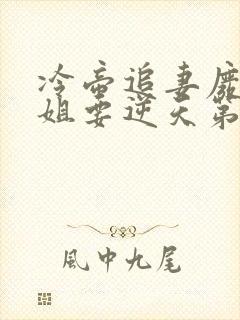 冷帝追妻廢
姐要逆天第
風中九尾